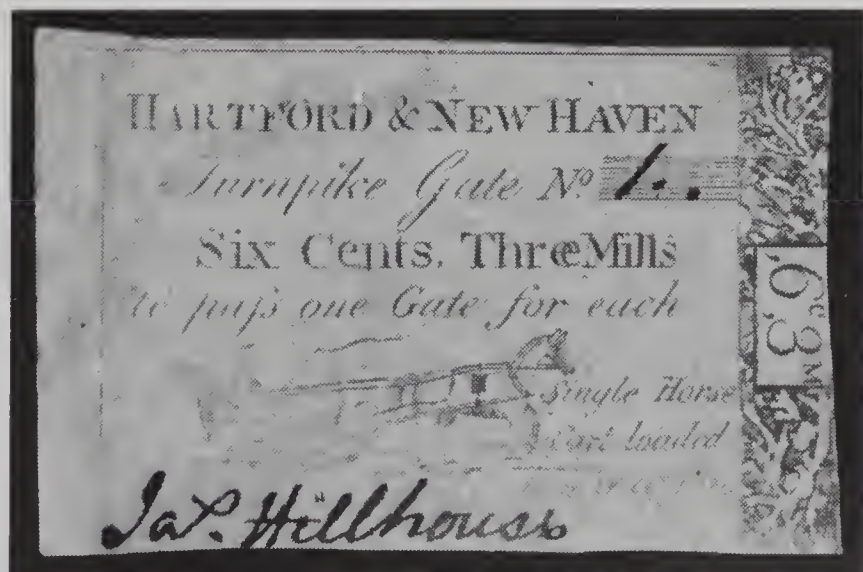 HARTFORD & NEW HAVEN
Turnpike Gate No 1.
Six Cents. Three Mills
to pass one Gate for each
Single Horse
Cart loaded
Jas. Hillhouse
6c 3M